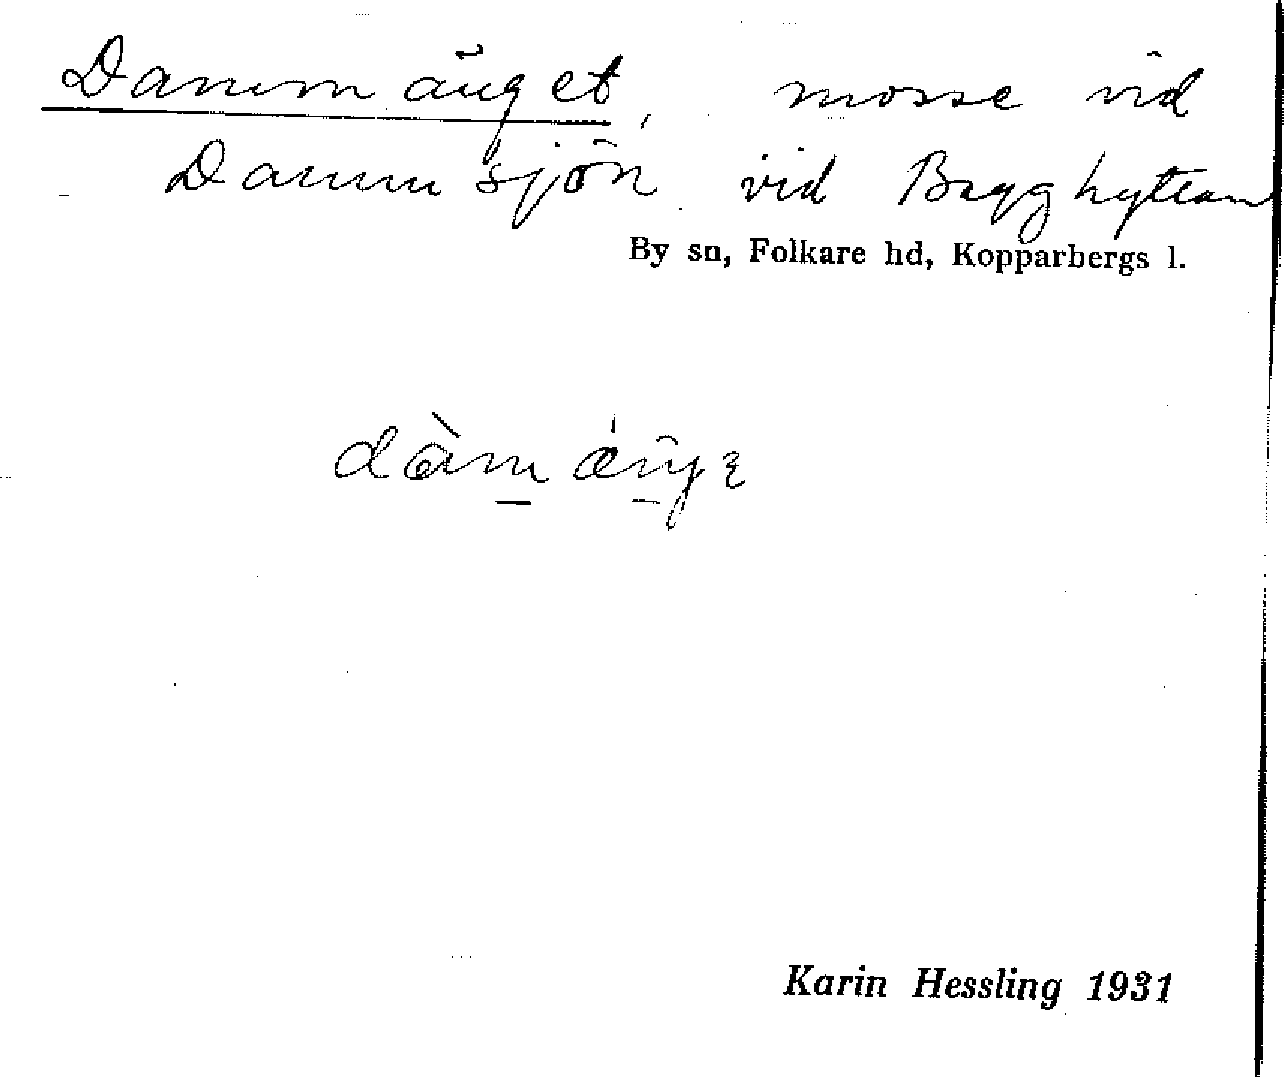 Dammänget, mosse vid
Dammsjön vid Bagghyttan
By sn, Folkare hd, Kopparbergs l.
Karin Hessling 1931